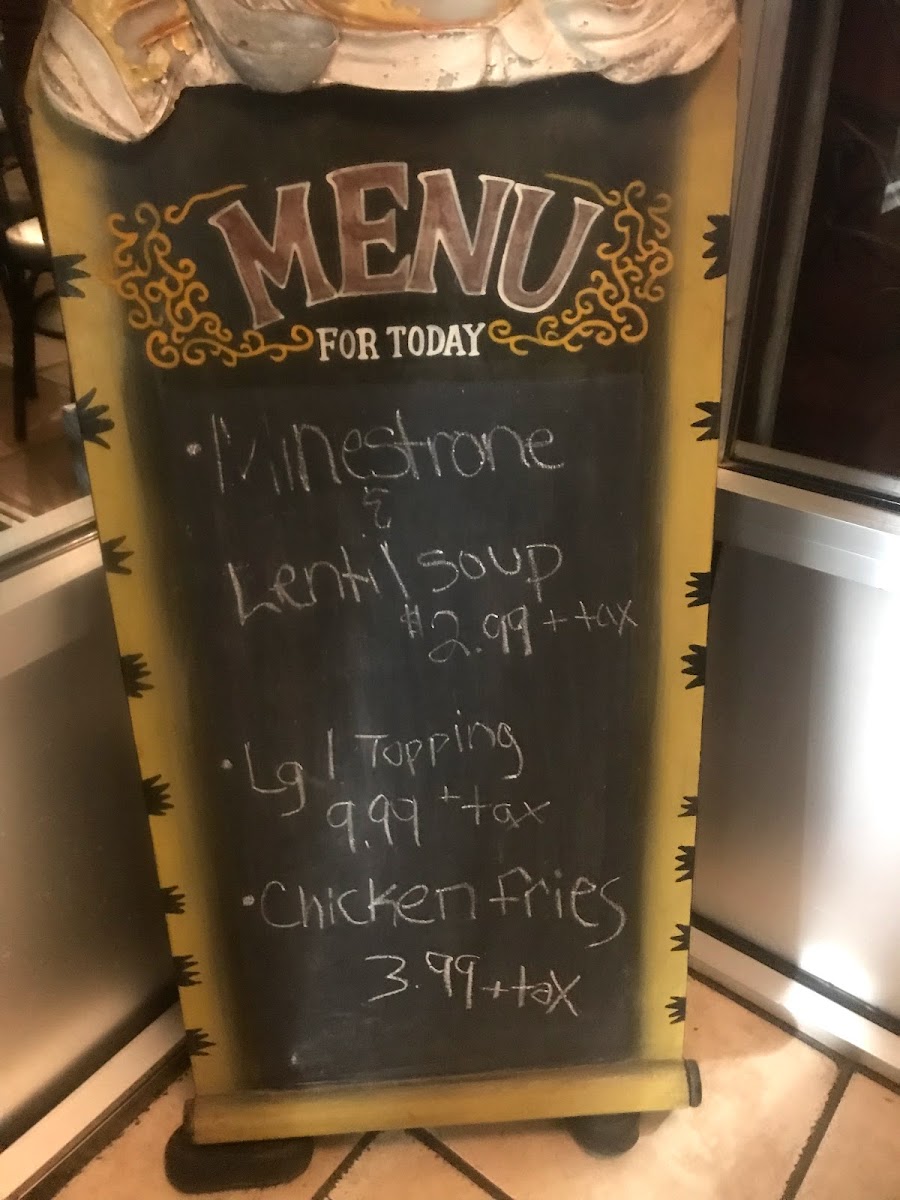 MENU
FOR TODAY
• Minestrone
&
Lentil soup
$2.99 + tax
• Lg 1 Topping
9.99 + tax
• Chicken fries
3.99 + tax